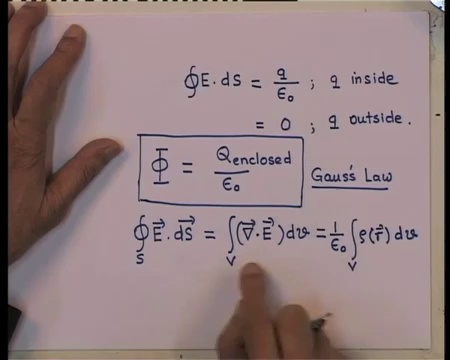 ∮E. ds = q/ε₀ ; q inside
= 0 ; q outside.
Φ = Qenclosed/ε₀ Gauss's Law
∮_S E⃗. dS⃗ = ∫_V (∇⃗·E⃗)dv = 1/ε₀ ∫_V ρ(r⃗) dv